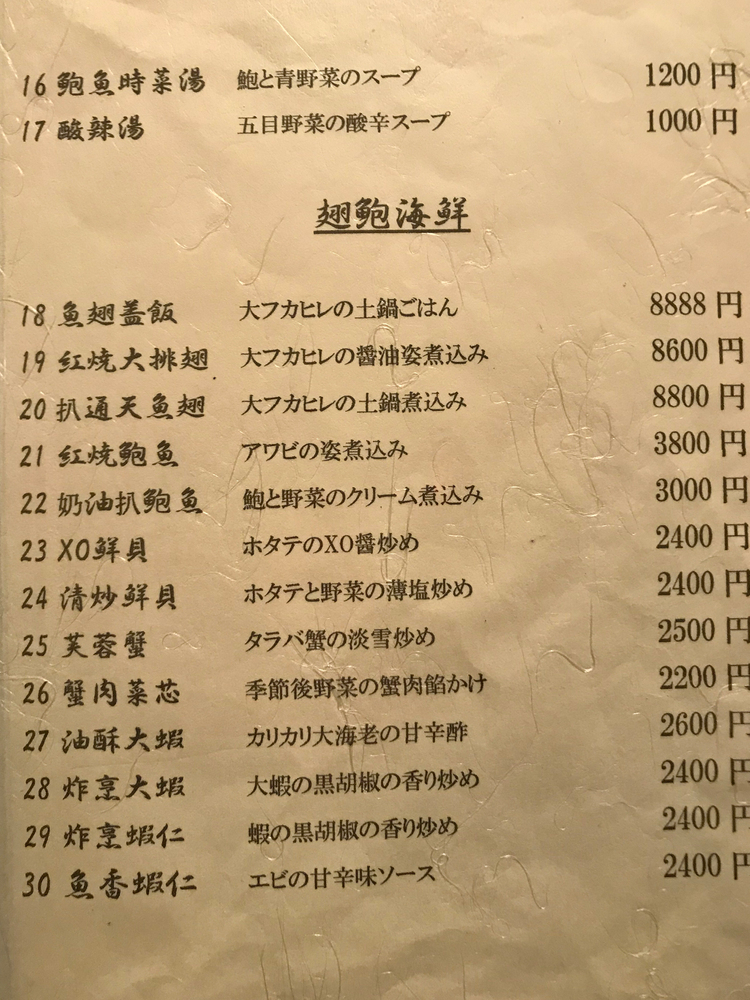 16 鮑魚時菜湯 鮑と青野菜のスープ 1200 円
17 酸辣湯 五目野菜の酸辛スープ 1000 円
翅鮑海鮮
18 魚翅盖飯 大フカヒレの土鍋ごはん 8888 円
19 红焼大排翅 大フカヒレの醤油姿煮込み 8600 円
20 扒通天魚翅 大フカヒレの土鍋煮込み 8800 円
21 红焼鮑魚 アワビの姿煮込み 3800 円
22 奶油扒鮑魚 鮑と野菜のクリーム煮込み 3000 円
23 XO鮮貝 ホタテのXO醤炒め 2400 円
24 清炒鮮貝 ホタテと野菜の薄塩炒め 2400 円
25 芙蓉蟹 タラバ蟹の淡雪炒め 2500 円
26 蟹肉菜芯 季節後野菜の蟹肉餡かけ 2200 円
27 油酥大蝦 カリカリ大海老の甘辛酢 2600 円
28 炸烹大蝦 大蝦の黒胡椒の香り炒め 2400 円
29 炸烹蝦仁 蝦の黒胡椒の香り炒め 2400 円
30 魚香蝦仁 エビの甘辛味ソース 2400 円